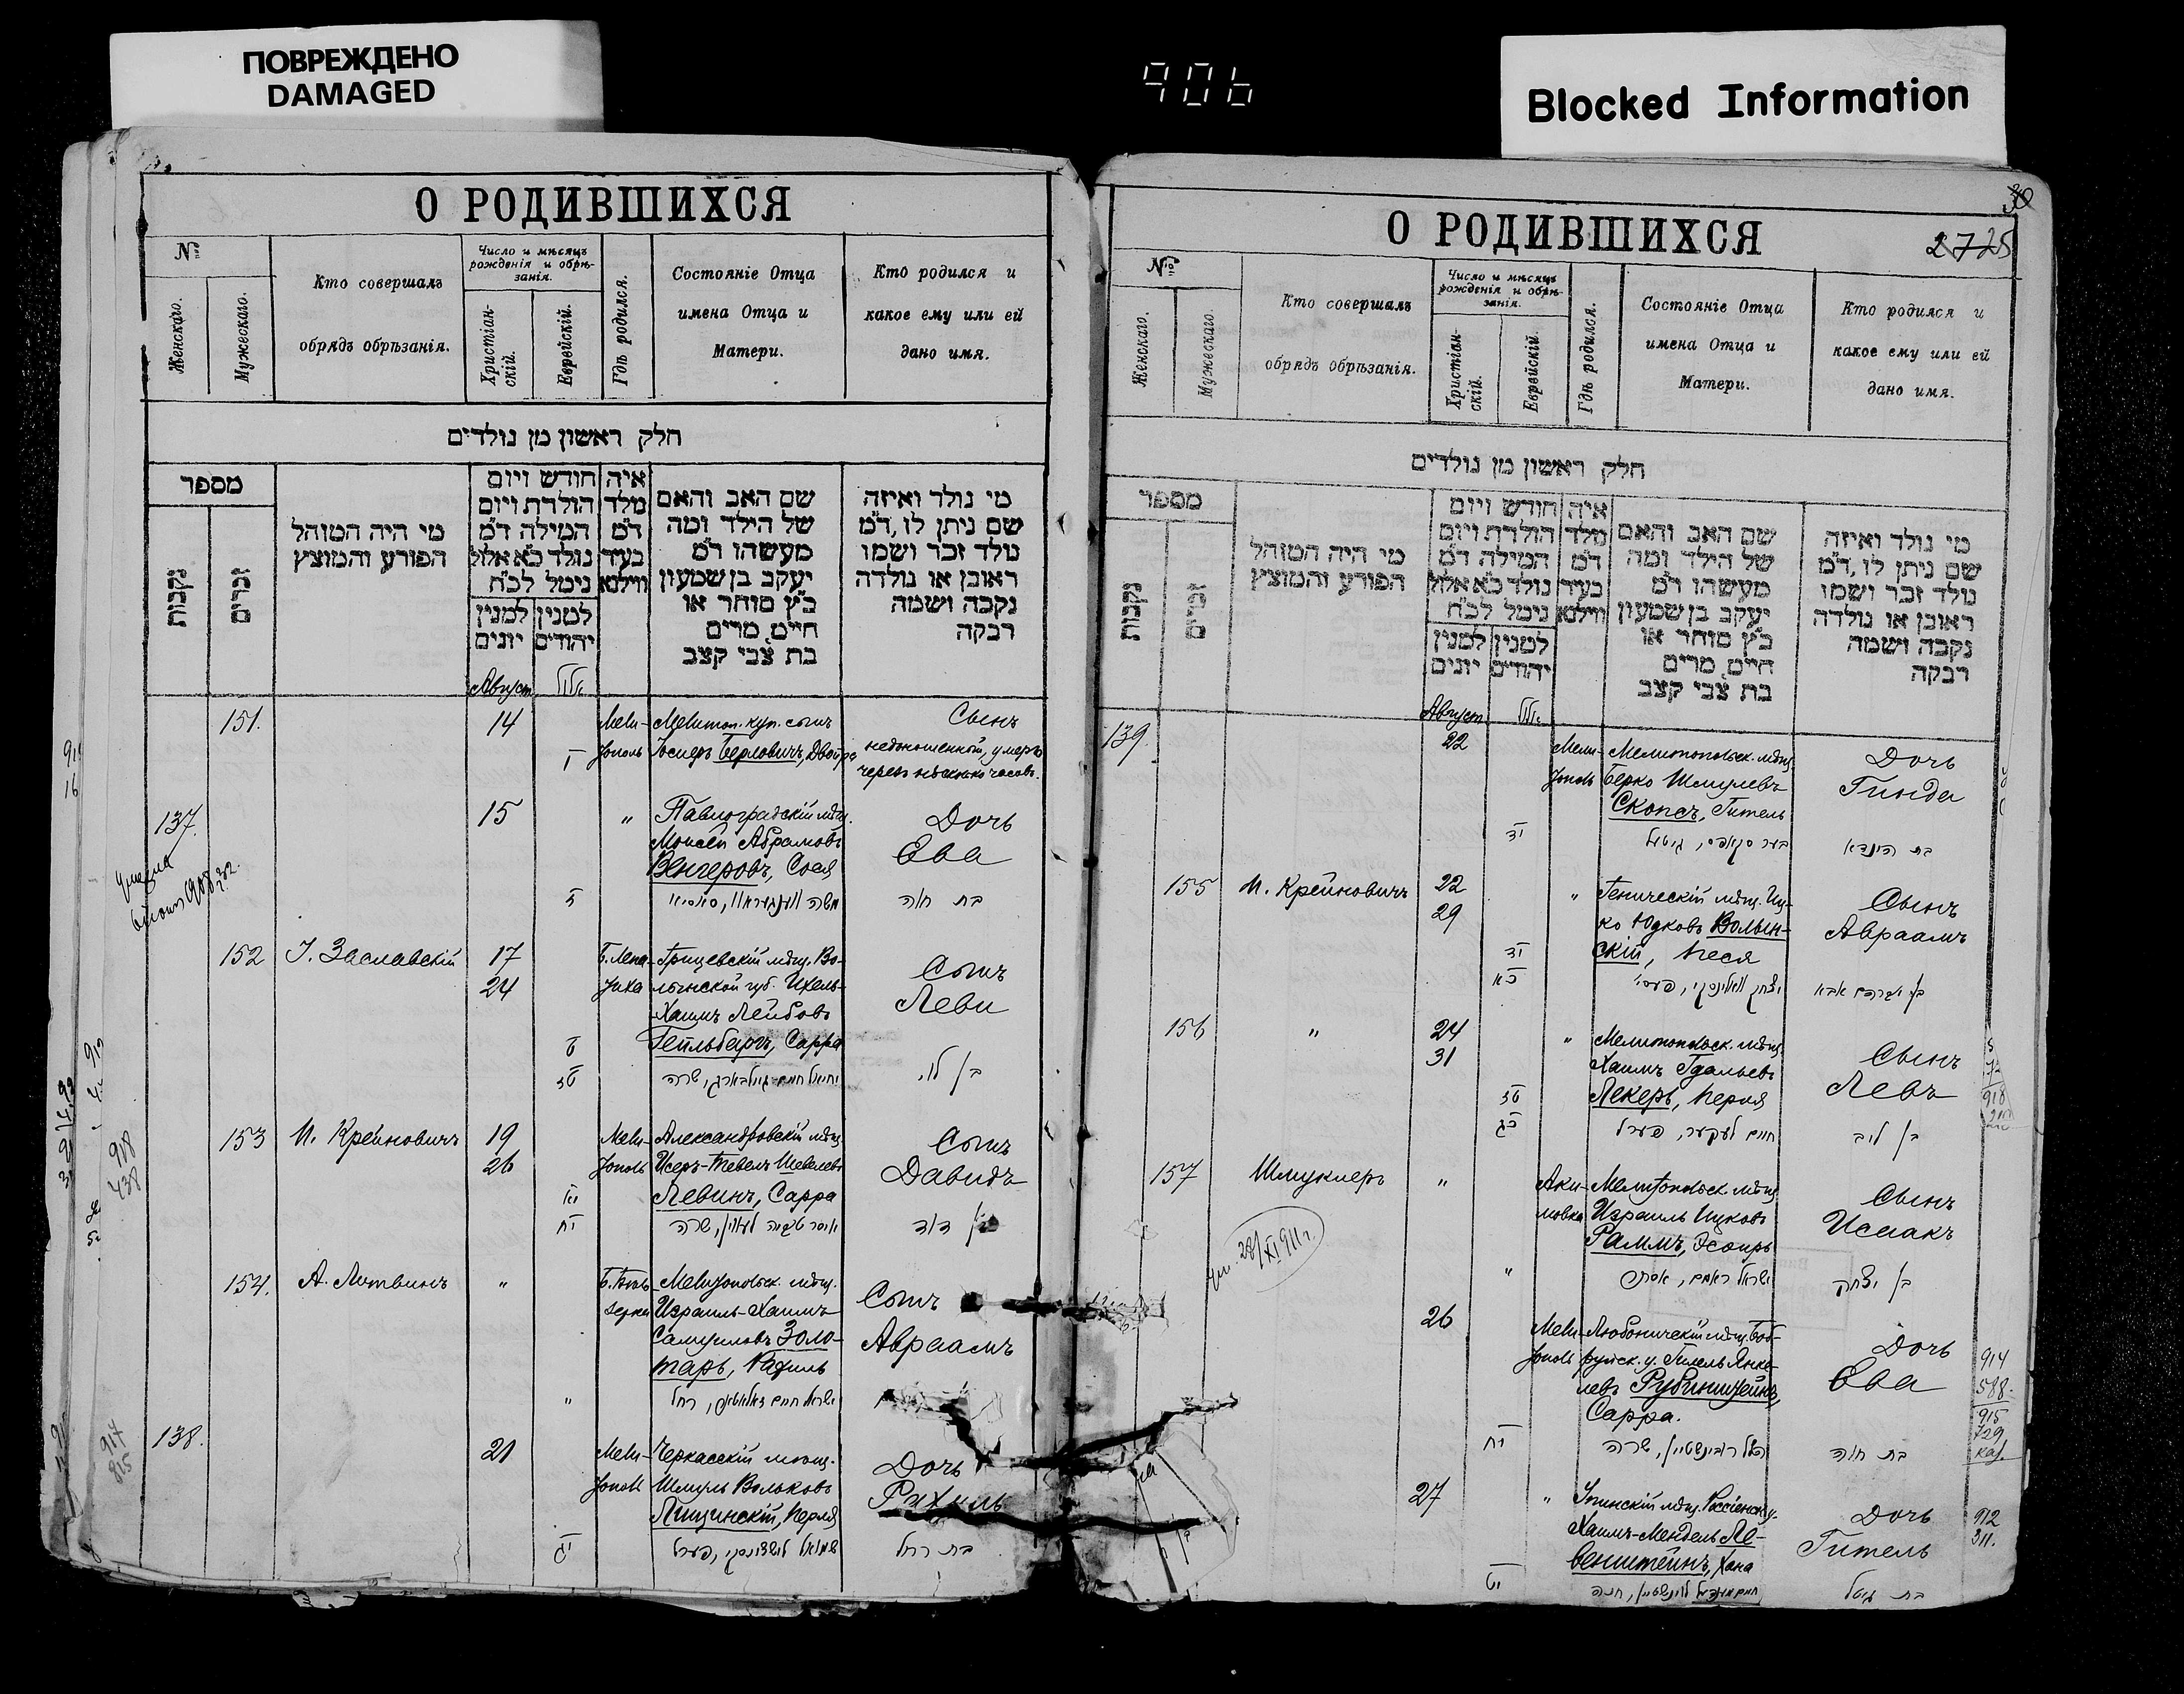 ПОВРЕЖДЕНО
DAMAGED
906
Blocked Information
О РОДИВШИХСЯ
№
Женскаго.
Мужескаго.
Кто совершалъ
обрядъ обрѣзанія.
Число и мѣсяцъ
рожденія и обрѣ-
занія.
Христіан-
скій.
Еврейскій.
Гдѣ родился.
Состояніе Отца
имена Отца и
Матери.
Кто родился и
какое ему или ей
дано имя.
חלק ראשון מן נולדים
מספר
נקבות
זכרים
מי היה המוהל
הפורע והמוצץ
חודש ויום
הולדת ויום
המילה ד״מ
נולד כ״א אלול
נימל לכ״ח
למנין יונים
למנין יהודים
איה
נולד
ד״מ
בעיר
ווילנא
שם האב והאם
של הילד ומה
מעשהו ד״מ
יעקב בן שמעון
כ״ץ סוחר או
חיים, מרים
בת צבי קצב
מי נולד ואיזה
שם ניתן לו, ד״מ
נולד זכר ושמו
ראובן או נולדה
נקבה ושמה
רבקה
Августъ
אלול
151.
14
Мели-
тополь
Мелитоп. куп. сынъ
Іосифъ Берловичъ, Двойра
Сынъ
недоношенный, умеръ
черезъ нѣсколько часовъ.
137.
15
"
Павлоградскій мѣщ.
Моисей Абрамовъ
Венгеровъ, Сося
Дочь
Ева
בת חוה
152
І. Заславскій
17
24
Грицевскій мѣщ. Во-
лынской губ. Ихель-
Хаимъ Лейбовъ
Гейльбергъ, Сарра
Сынъ
Леви
ט
טז
בן לוי
153
И. Крейновичъ
19
26
Мели-
тополь
Александровскій мѣщ.
Исеръ-Тевель Шевелевъ
Левинъ, Сарра
Сынъ
Давидъ
יא
יח
בן דוד
154.
А. Литвинъ
"
Мелитопольск. мѣщ.
Израиль-Хаимъ
Самуиловъ Золо-
тарь, Рахиль
Сынъ
Авраамъ
"
138.
21
Мели-
тополь
Черкасскій мѣщ.
Шмуль Вольковъ
Лищинскій, Перля
Дочь
Рахиль
יג
בת רחל
О РОДИВШИХСЯ
30
2725
№
Женскаго.
Мужескаго.
Кто совершалъ
обрядъ обрѣзанія.
Число и мѣсяцъ
рожденія и обрѣ-
занія.
Христіан-
скій.
Еврейскій.
Гдѣ родился.
Состояніе Отца
имена Отца и
Матери.
Кто родился и
какое ему или ей
дано имя.
חלק ראשון מן נולדים
מספר
נקבות
זכרים
מי היה המוהל
הפורע והמוצץ
חודש ויום
הולדת ויום
המילה ד״מ
נולד כ״א אלול
נימל לכ״ח
למנין יונים
למנין יהודים
איה
מלד
ד״מ
בעיר
ווילנא
שם האב והאם
של הילד ומה
מעשהו ד״מ
יעקב בן שמעון
כ״ץ סוחר או
חיים, מרים
בת צבי קצב
מי נולד ואיזה
שם ניתן לו, ד״מ
נולד זכר ושמו
ראובן או נולדה
נקבה ושמה
רבקה
Августъ
אלול
139.
22
Мели-
тополь
Мелитопольск. мѣщ.
Берко Шмулевъ
Скопсъ, Гитель
Дочь
Гинда
יד
בת הינדא
155
И. Крейновичъ
22
29
"
Геническій мѣщ. Иц-
ко Юдковъ Волын-
скій, Песя
Сынъ
Авраамъ
יד
כא
בן אברהם אבא
156
"
24
31
"
Мелитопольск. мѣщ.
Хаимъ Гдальевъ
Лекеръ, Перля
Сынъ
Левъ
טז
כג
חיים לעקער, פערל
בן ליב
157
Шмуклеръ
"
Аки-
мовка
Мелитопольск. мѣщ.
Израиль Ицковъ
Раммъ, Эсфирь
Сынъ
Исаакъ
ум. 28/XI 911 г.
"
ישראל ראם, אסתר
בן יצחק
26
Мели-
тополь
Любоничскій мѣщ. Боб-
руйск. у. Гилель Янке-
левъ Рубинштейнъ,
Сарра.
Дочь
Ева
914
588.
915
729
יח
הלל רובינשטיין, שרה
בת חוה
27
"
Хаимъ-Мендель Ле-
венштейнъ, Хана
Дочь
Гитель
912
311.
יט
בת גיטל